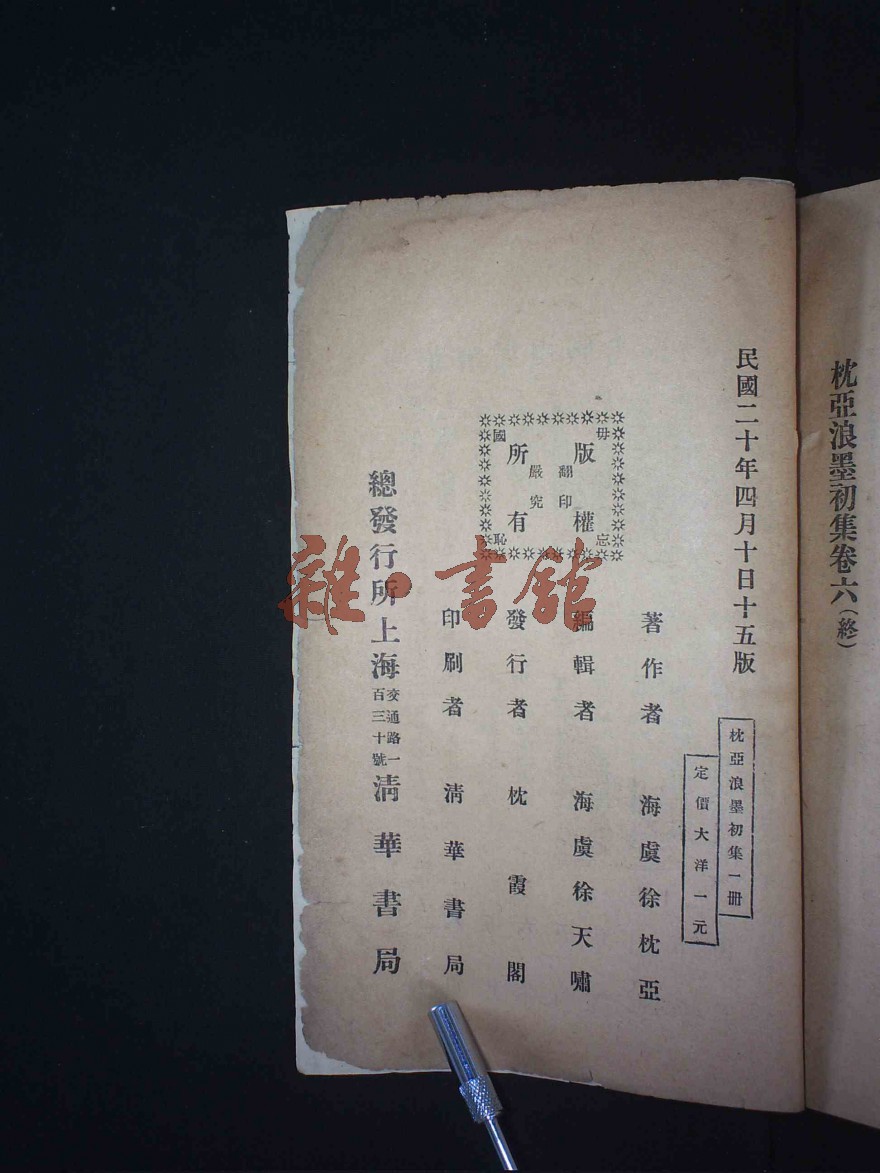 枕亞浪墨初集卷六(終)
民國二十年四月十日十五版
枕亞浪墨初集一冊
定價大洋一元
著作者 海虞徐枕亞
編輯者 海虞徐天嘯
發行者 枕霞閣
印刷者 清華書局
毋忘國恥
版權所有
翻印嚴究
總發行所上海交通路一百三十號清華書局
雜·書館